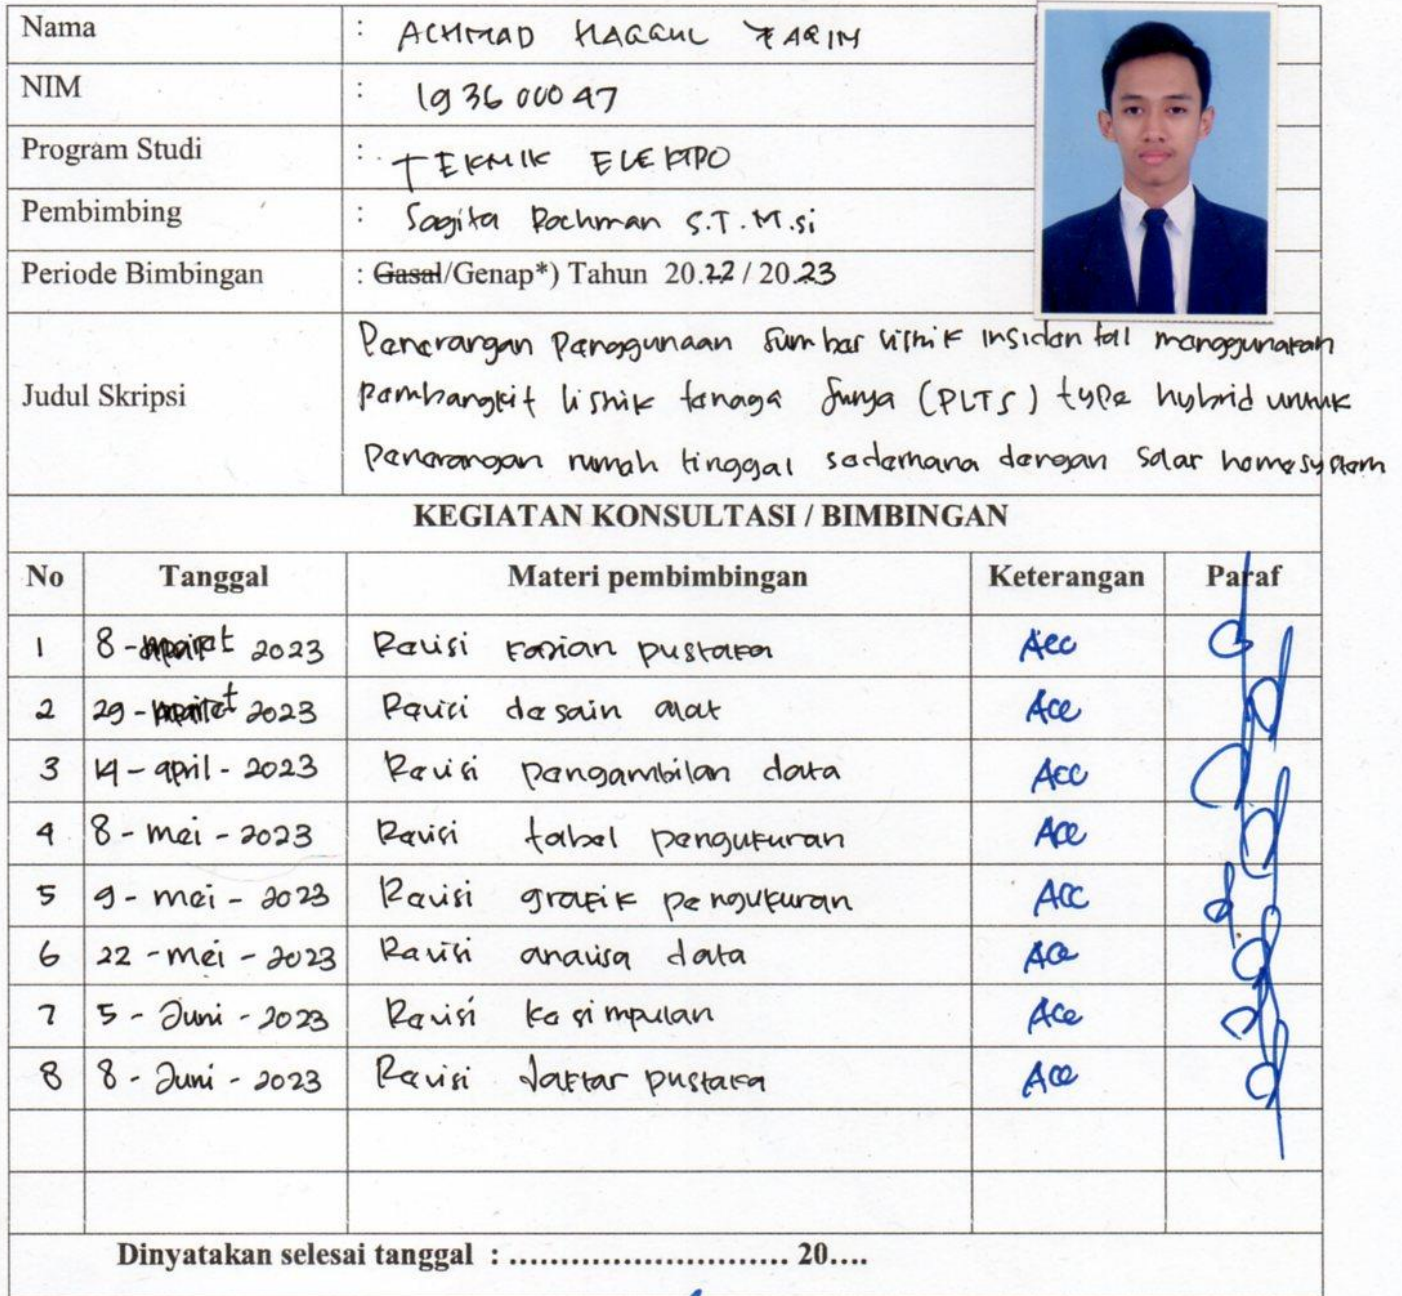 Nama : ACHMAD HAQQUL YAQIN
NIM : 193600047
Program Studi : TEKNIK ELEKTRO
Pembimbing : Sagita Rochman S.T. M.si
Periode Bimbingan : Gasal/Genap*) Tahun 20.22 / 20.23
Judul Skripsi
Penerangan Penggunaan Sumber listrik insidentall menggunakan
pembangkit listrik tenaga Surya (PLTS) type hybrid untuk
penerangan rumah tinggal sederhana dengan Solar home system
KEGIATAN KONSULTASI / BIMBINGAN
No Tanggal Materi pembimbingan Keterangan Paraf
1 8 - maret 2023 Revisi kajian pustaka Acc
2 29 - maret 2023 Revisi desain alat Acc
3 14 - april - 2023 Revisi pengambilan data Acc
4 8 - mei - 2023 Revisi tabel pengukuran Acc
5 9 - mei - 2023 Revisi grafik pengukuran Acc
6 22 - mei - 2023 Revisi analisa data Acc
7 5 - Juni - 2023 Revisi kesimpulan Acc
8 8 - Juni - 2023 Revisi daftar pustaka Acc
Dinyatakan selesai tanggal : ............................ 20....